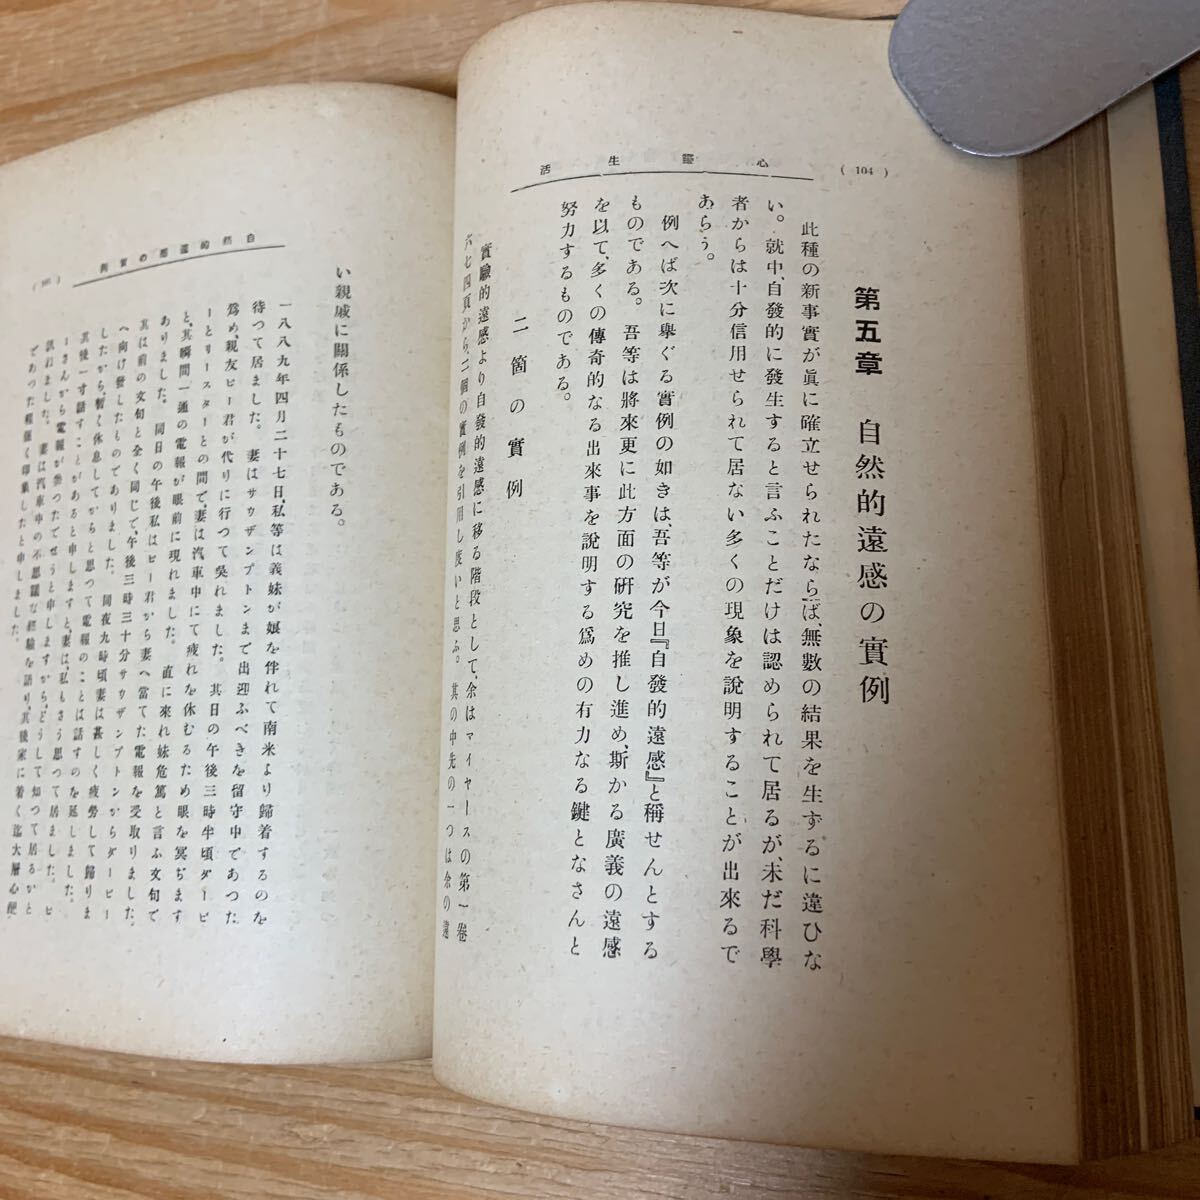 心靈生活
( 104 )
第五章 自然的遠感の實例
此種の新事實が眞に確立せられたならば、無數の結果を生ずるに違ひな
い。就中、自發的に發生すると言ふことだけは認められて居るが、未だ科學
者からは十分信用せられて居ない多くの現象を說明することが出來るで
あらう。
例へば次に擧ぐる實例の如きは、吾等が今日『自發的遠感』と稱せんとする
ものである。吾等は將來更に此方面の硏究を推し進め、斯かる廣義の遠感
を以て、多くの傳奇的なる出來事を說明する爲めの有力なる鍵となさんと
努力するものである。
二箇の實例
實驗的遠感より自發的遠感に移る階段として、余はマイヤースの第一卷
六七四頁から、二個の實例を引用し度いと思ふ。其の中先の一つは余の遠
自然的遠感の實例
( 105 )
い親戚に關係したものである。
一八八九年四月二十七日、私等は義妹が娘を伴れて南米より歸着するのを
待つて居ました。妻はサウザンプトンまで出迎ふべきを留守中であつた
爲め、親友ピー君が代りに行つて吳れました。其日の午後三時半頃ダービ
ーとリースターとの間で、妻は汽車中にて疲れを休むるため眼を冥ぢます
と、其瞬間一通の電報が眼前に現れました。直に來れ妹危篤と言ふ文句で
ありました。同日の午後私はピー君から妻へ當てた電報を受取りました。
其は前の文句と全く同じで、午後三時三十分サウザンプトンからダービー
へ向け發したものでありました。同夜九時頃妻は甚しく疲勞して歸りま
したから、暫く休息してからと思つて電報のことは話すのを延しました。
其後一寸話すことがあると申しますと、妻は、私もさう思つて居ました。ピ
ーさんから電報が參つたでせうと申しますから、どうして知つて居るかと
訊ねました。妻は汽車中の不思議な經驗を語り、其後家に着く迄大層心配
であつた程强く印象したと申しました。